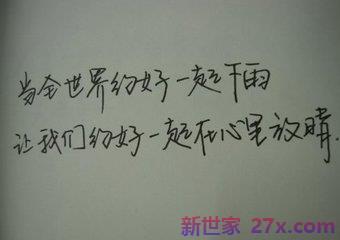 当全世界约好一起下雨
让我们约好一起在心里放晴.
新世家 27x.com